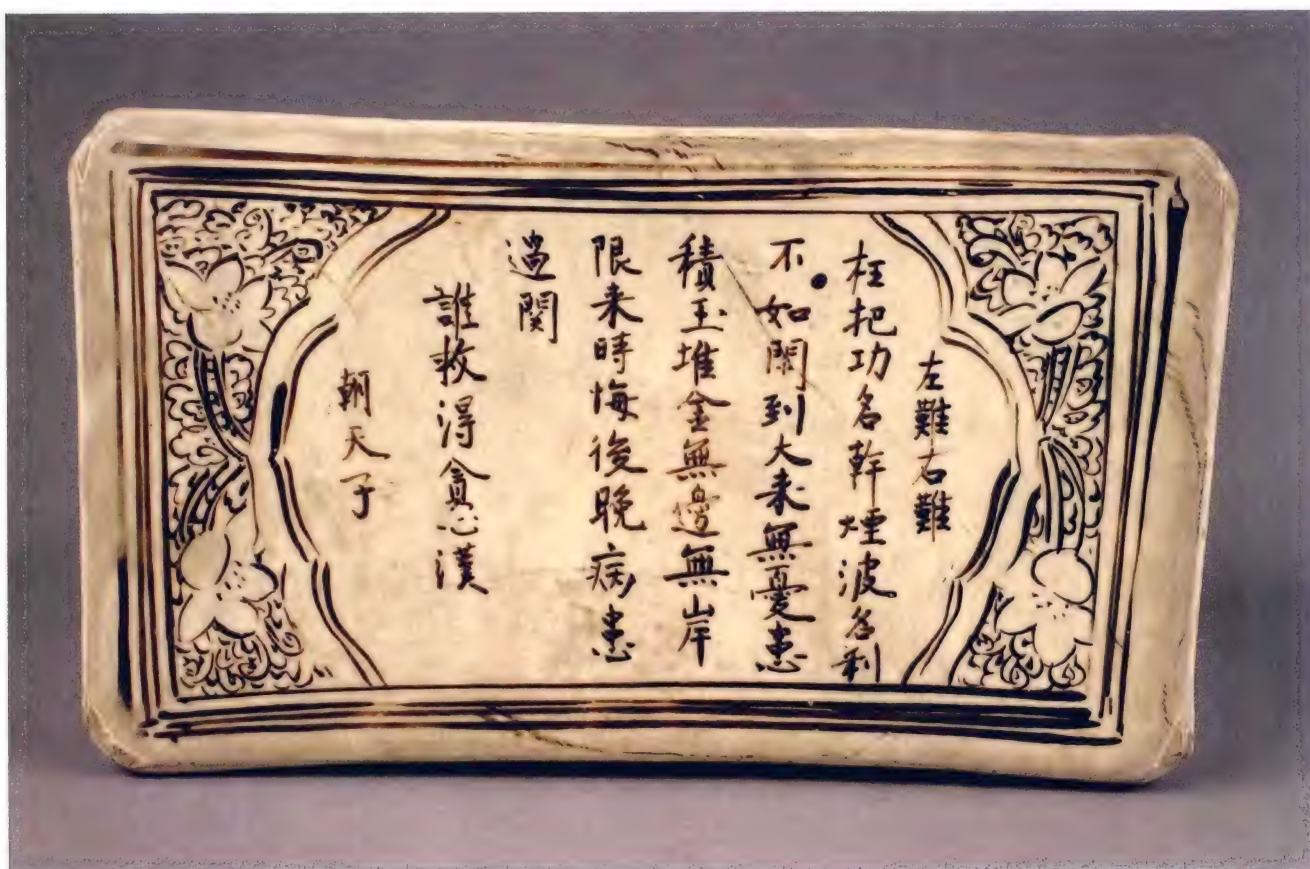 左難右難
枉把功名幹煙波名利
不如閑到大来無憂患
積玉堆金無邉無岸
限来時悔後晚病患
過関
誰救得貪心漢
朝天子